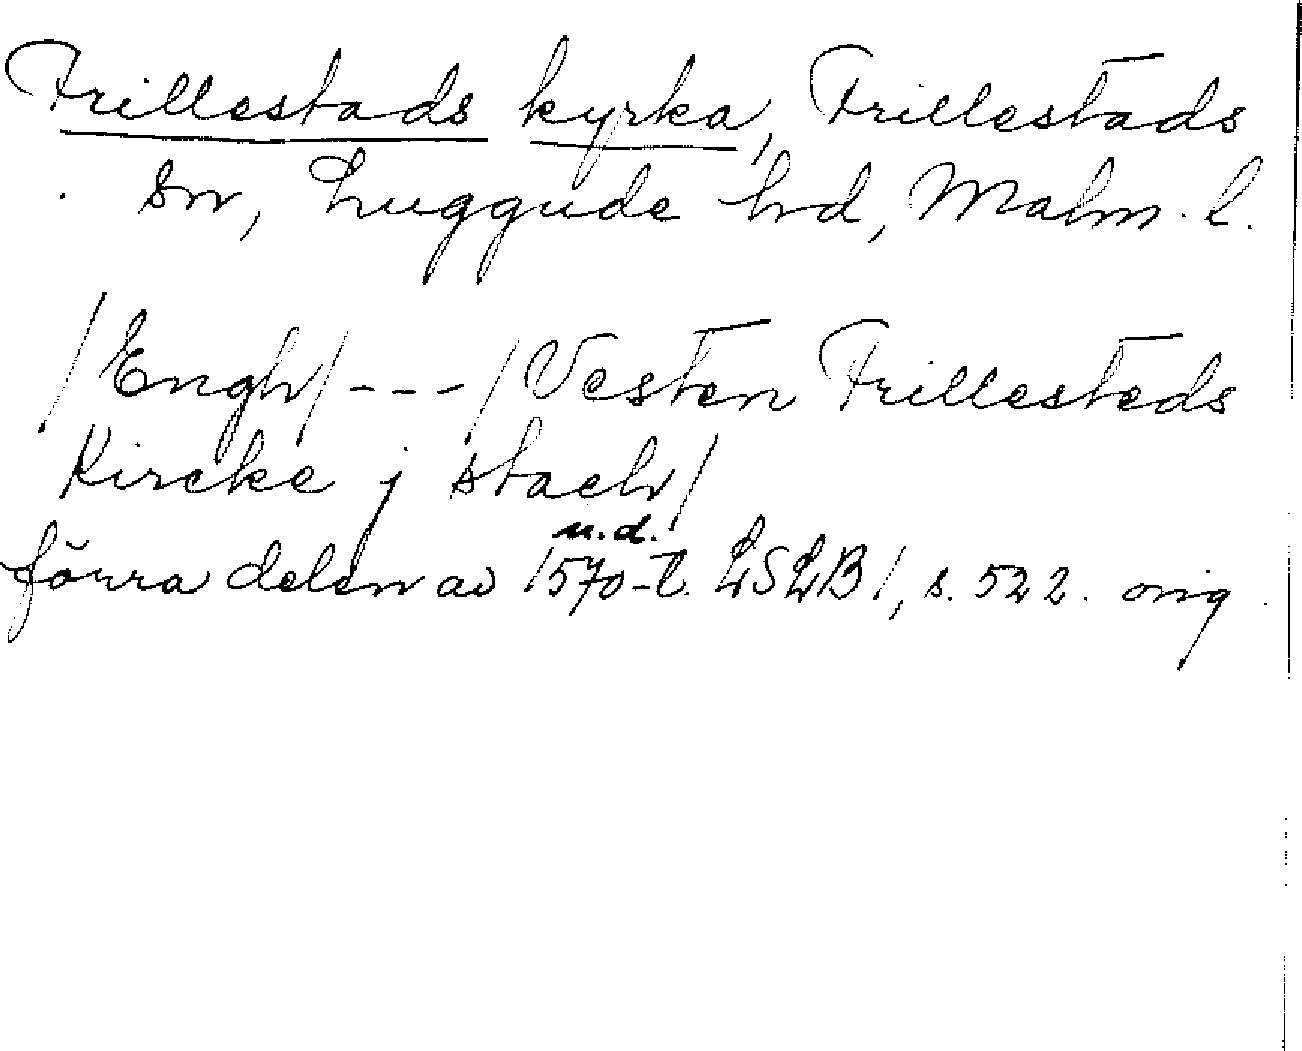 Frillestads kyrka, Frillestads
sn, Luggude hd, Malm. l.
/Engh/ --- /Vesten Frillesteds
Kircke j stach/
u.d.
förra delen av 1570-t. LSLB 1, s. 522. orig.